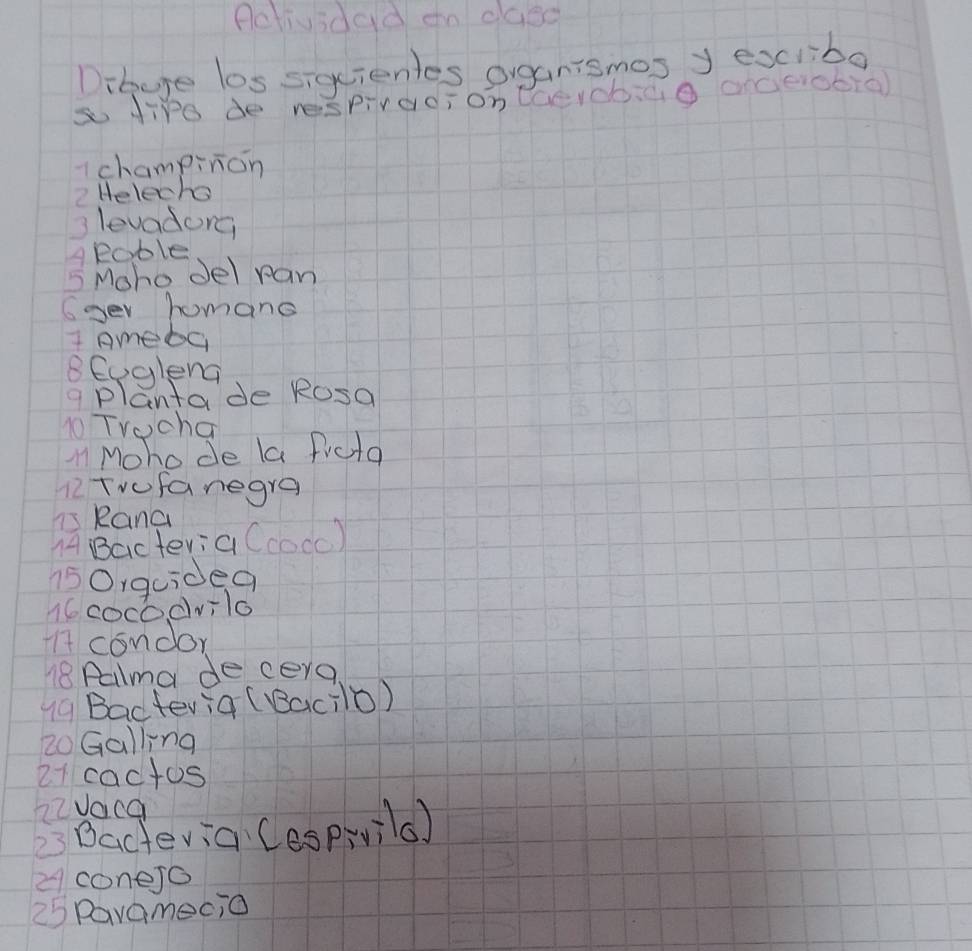 Actividad en clase
Dibuje los siguientes organismos y escriba
su tipo de respiración (aerobia o anaerobia)
1 champiñón
2 Helecho
3 levadura
4 Roble
5 Moho del pan
6 ser humano
7 Ameba
8 Euglena
9 Planta de Rosa
10 Trucha
11 Moho de la fruta
12 Trufa negra
13 Rana
14 Bacteria (coco)
15 Orquidea
16 cocodrilo
17 cóndor
18 Palma de cera
19 Bacteria (Bacilo)
20 Gallina
21 cactus
22 vaca
23 Bacteria (espirilo)
24 conejo
25 Paramecio